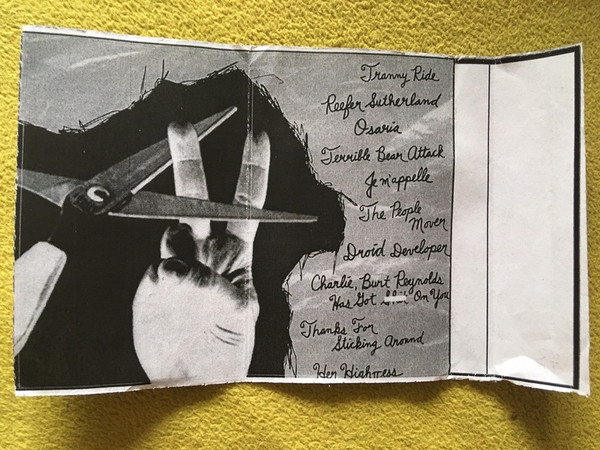 Tranny Ride
Reefer Sutherland
Osaria
Terrible Bear Attack
Je m'appelle
The People
Mover
Droid Developer
Charlie, Burt Reynolds
Has Got Shit On You
Thanks For
Sticking Around
Her Highness